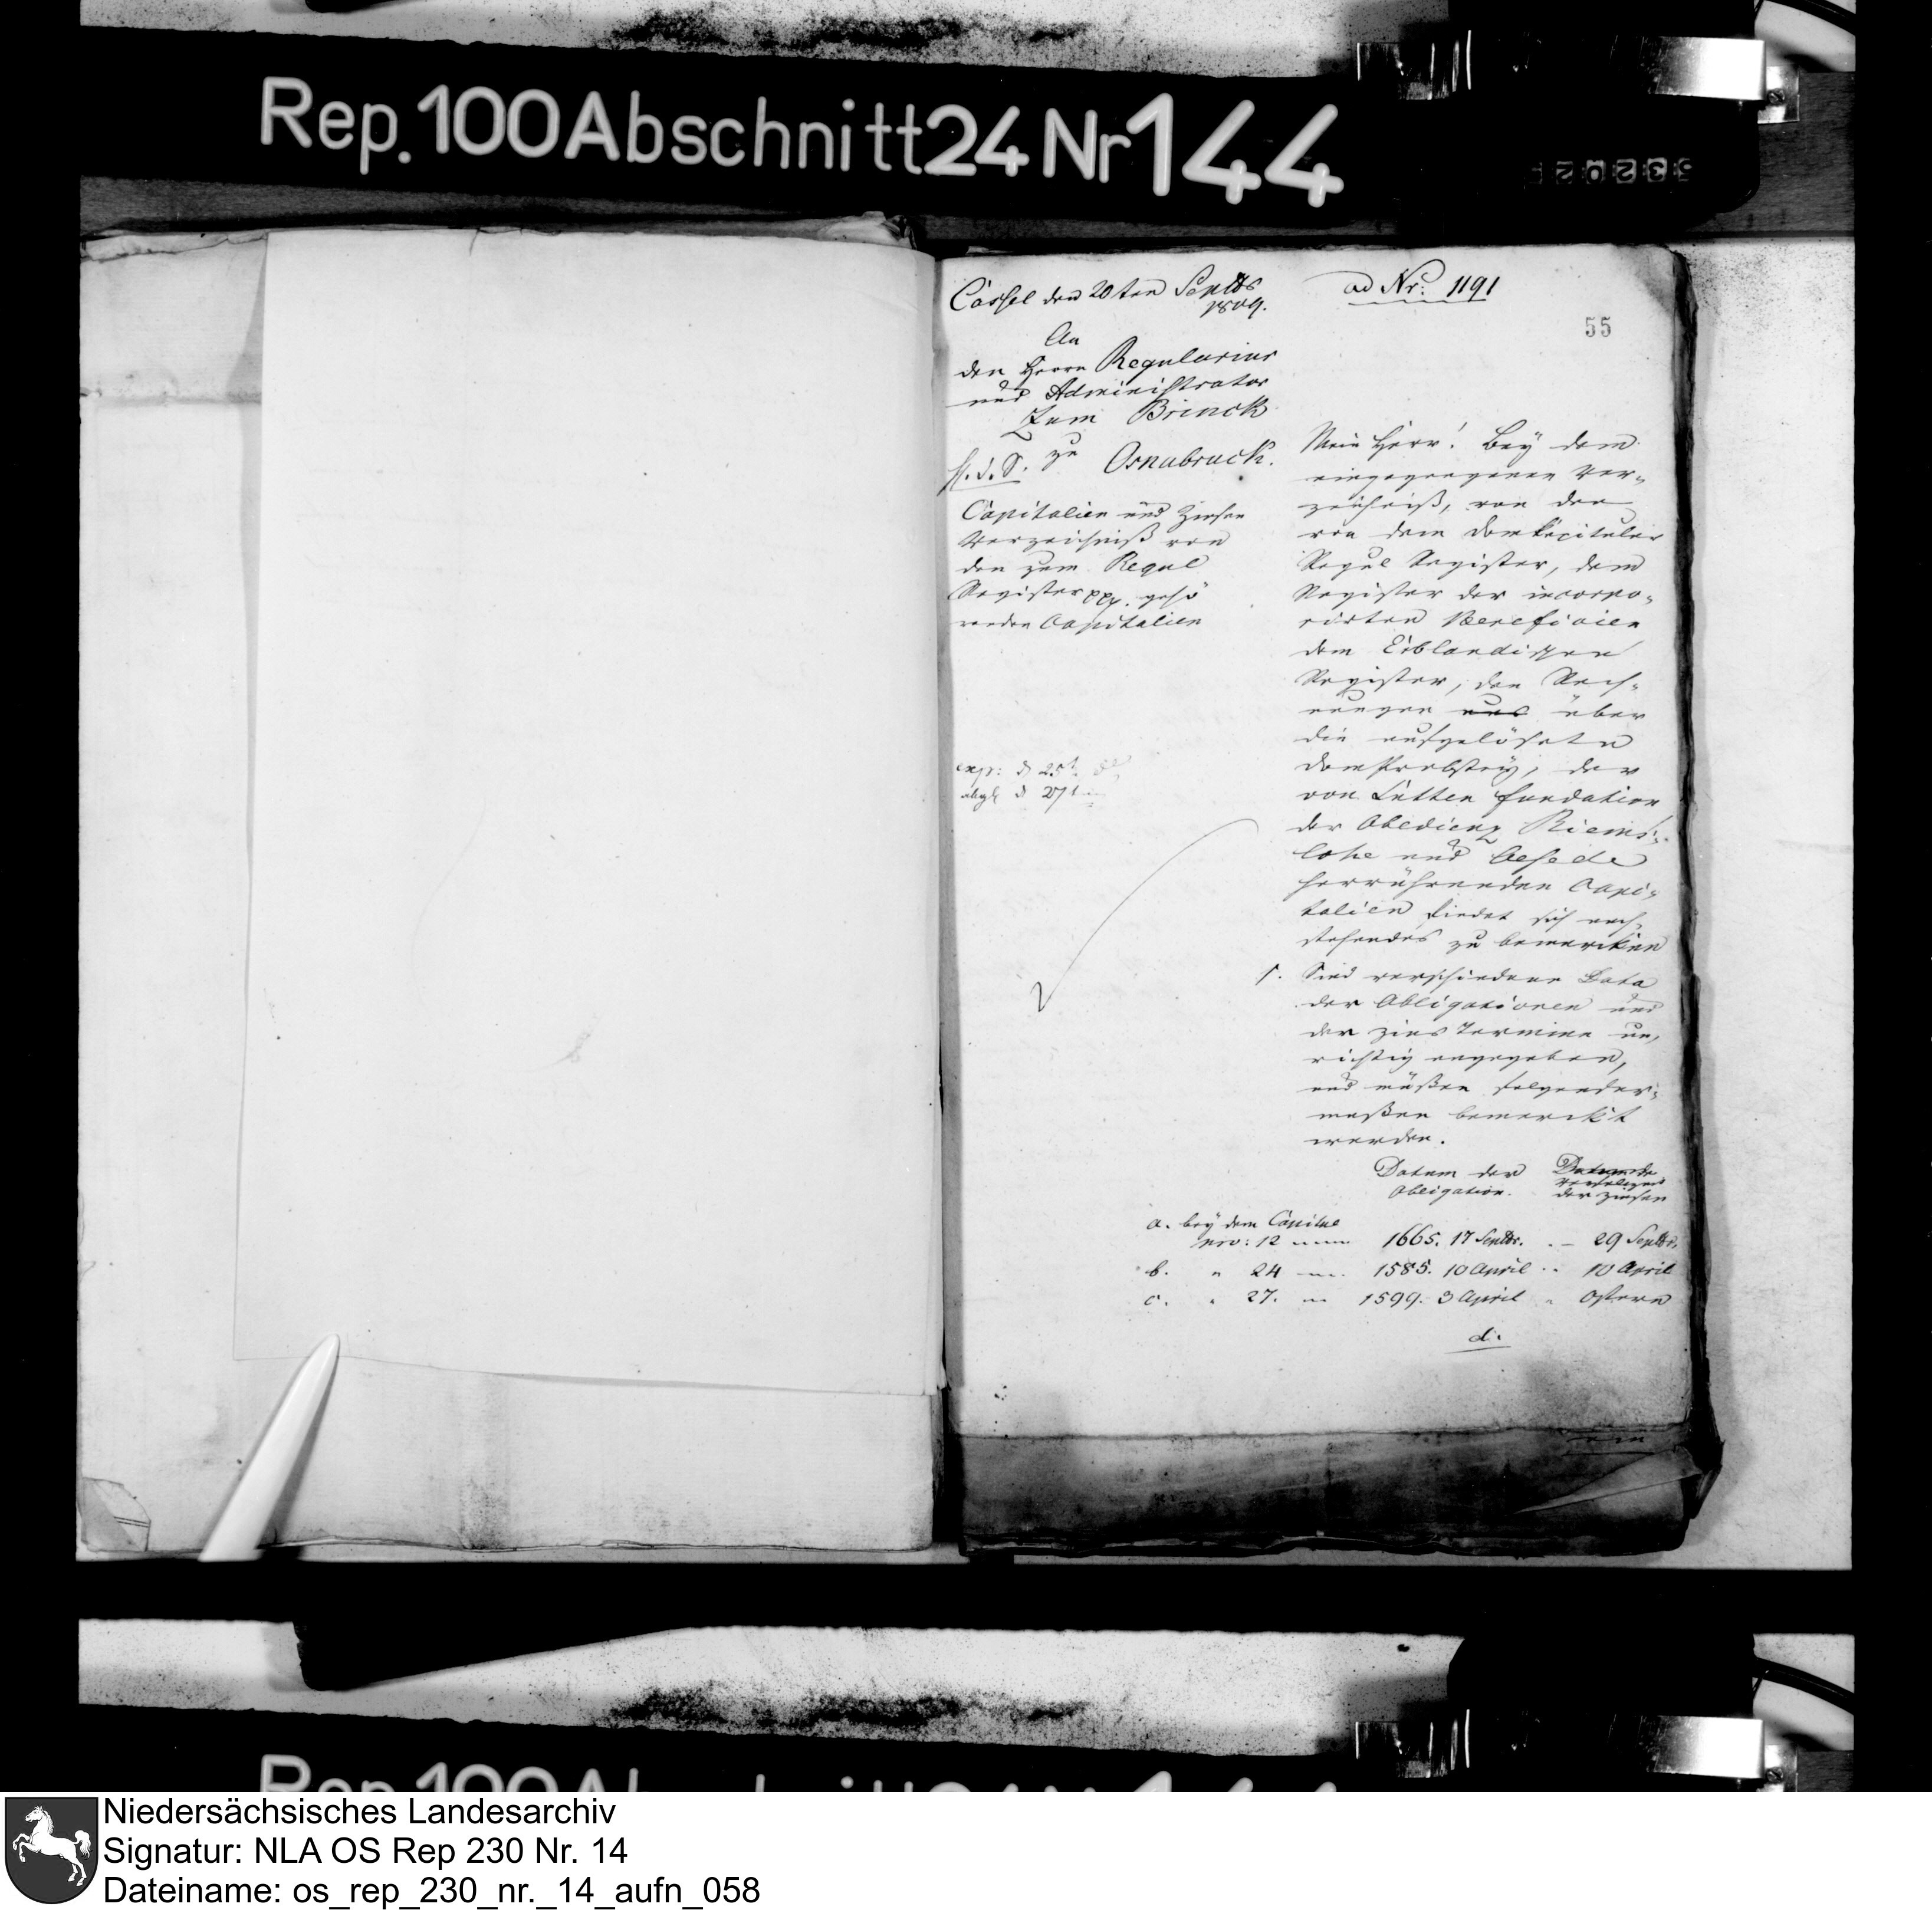 Rep. 100 Abschnitt 24 Nr 144
Cassel den 20ten Septbr
1809.
An
den Herrn Regularius
und Administrator
Zum Brinck
zu Osnabruck.
ad Nr: 1191
55
Capitalien und Zinsen
Verzeichniß von
den zum Regul
Register ppp. gehö
renden Capitalien
exp: d 25t
abgl d 27t
Mein Herr! Bey dem
eingegangenen Ver-
zeichniß, von den
von dem Domkapitular
Regul Register, dem
Register der incorpo-
rirten Beneficien
dem Eiblandischen
Register, den Rech-
nungen und über
die aufgelösete
DomProbstey, der
von Lutten fundation
der Obedienz Riems-
lohe und Oesede
herrührenden Capi-
talien findet sich nach-
stehendes zu bemercken
1. Sind verschiedene Data
der Obligationen und
der Zins Termine un-
richtig angegeben,
und müßen folgender-
maßen bemerckt
werden.
Datum der
Obligation.
der Zinsen
a. bey dem Capital
nro: 12 1665. 17 Septbr. 29 Septbr.
b. " 24 1585. 10 April 10 April
c. " 27. 1599. 3 April Ostern
d.
Niedersächsisches Landesarchiv
Signatur: NLA OS Rep 230 Nr. 14
Dateiname: os_rep_230_nr._14_aufn_058